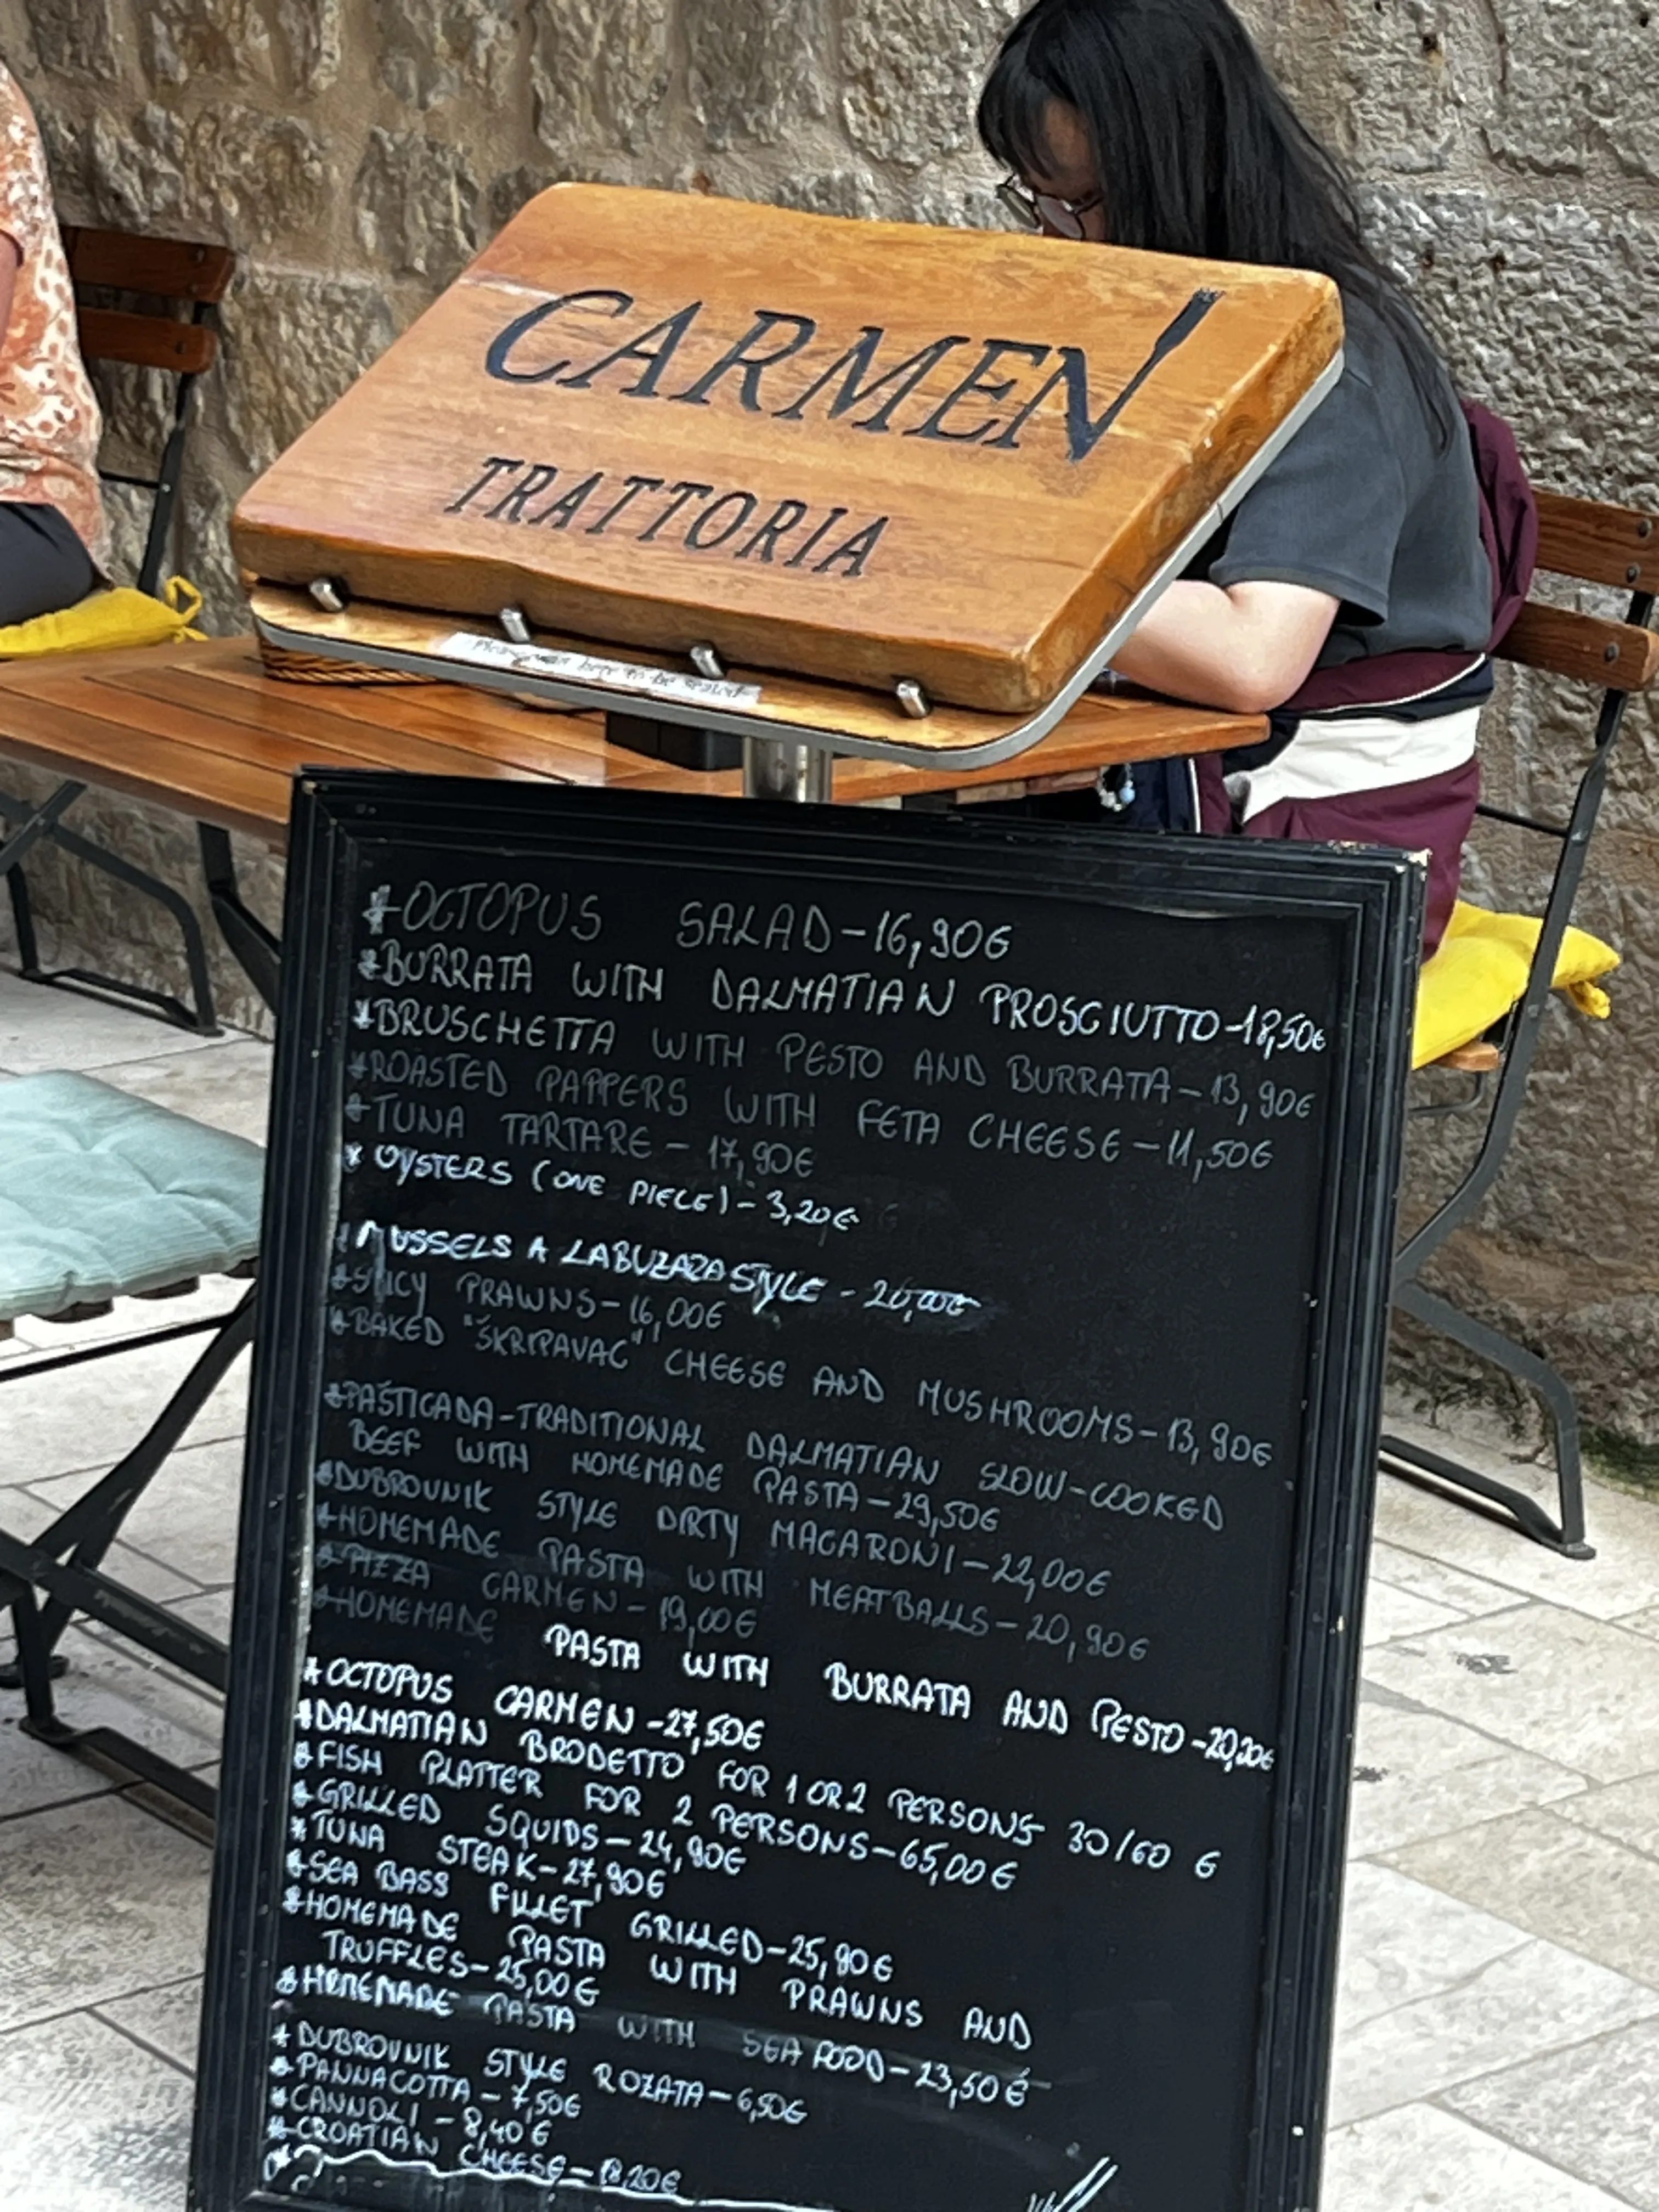 CARMEN
TRATTORIA
Please wait here to be seated
*OCTOPUS SALAD-16,90€
*BURRATA WITH DALMATIAN PROSCIUTTO-18,50€
*BRUSCHETTA WITH PESTO AND BURRATA-13,90€
*ROASTED PAPPERS WITH FETA CHEESE-11,50€
*TUNA TARTARE-17,90€
* OYSTERS (ONE PIECE)-3,20€
*MUSSELS A LABUZAZA STYLE - 20,00€
*SPICY PRAWNS-16,00€
*BAKED "ŠKRIPAVAC" CHEESE AND MUSHROOMS-13,90€
*PAŠTICADA-TRADITIONAL DALMATIAN SLOW-COOKED
BEEF WITH HOMEMADE PASTA-29,50€
*DUBROVNIK STYLE DIRTY MACARONI-22,00€
*HOMEMADE PASTA WITH MEATBALLS-20,90€
*PIZZA CARMEN-19,00€
*HOMEMADE PASTA WITH BURRATA AND PESTO-20,20€
*OCTOPUS CARMEN-27,50€
*DALMATIAN BRODETTO FOR 1 OR 2 PERSONS 30/60 €
*FISH PLATTER FOR 2 PERSONS-65,00€
*GRILLED SQUIDS-24,90€
*TUNA STEAK-27,90€
*SEA BASS FILLET GRILLED-25,90€
*HOMEMADE PASTA WITH PRAWNS AND
TRUFFLES-25,00€
*HOMEMADE PASTA WITH SEA FOOD-23,50€
*DUBROVNIK STYLE ROZATA-6,50€
*PANNACOTTA-7,50€
*CANNOLI-8,40€
*CROATIAN CHEESE-